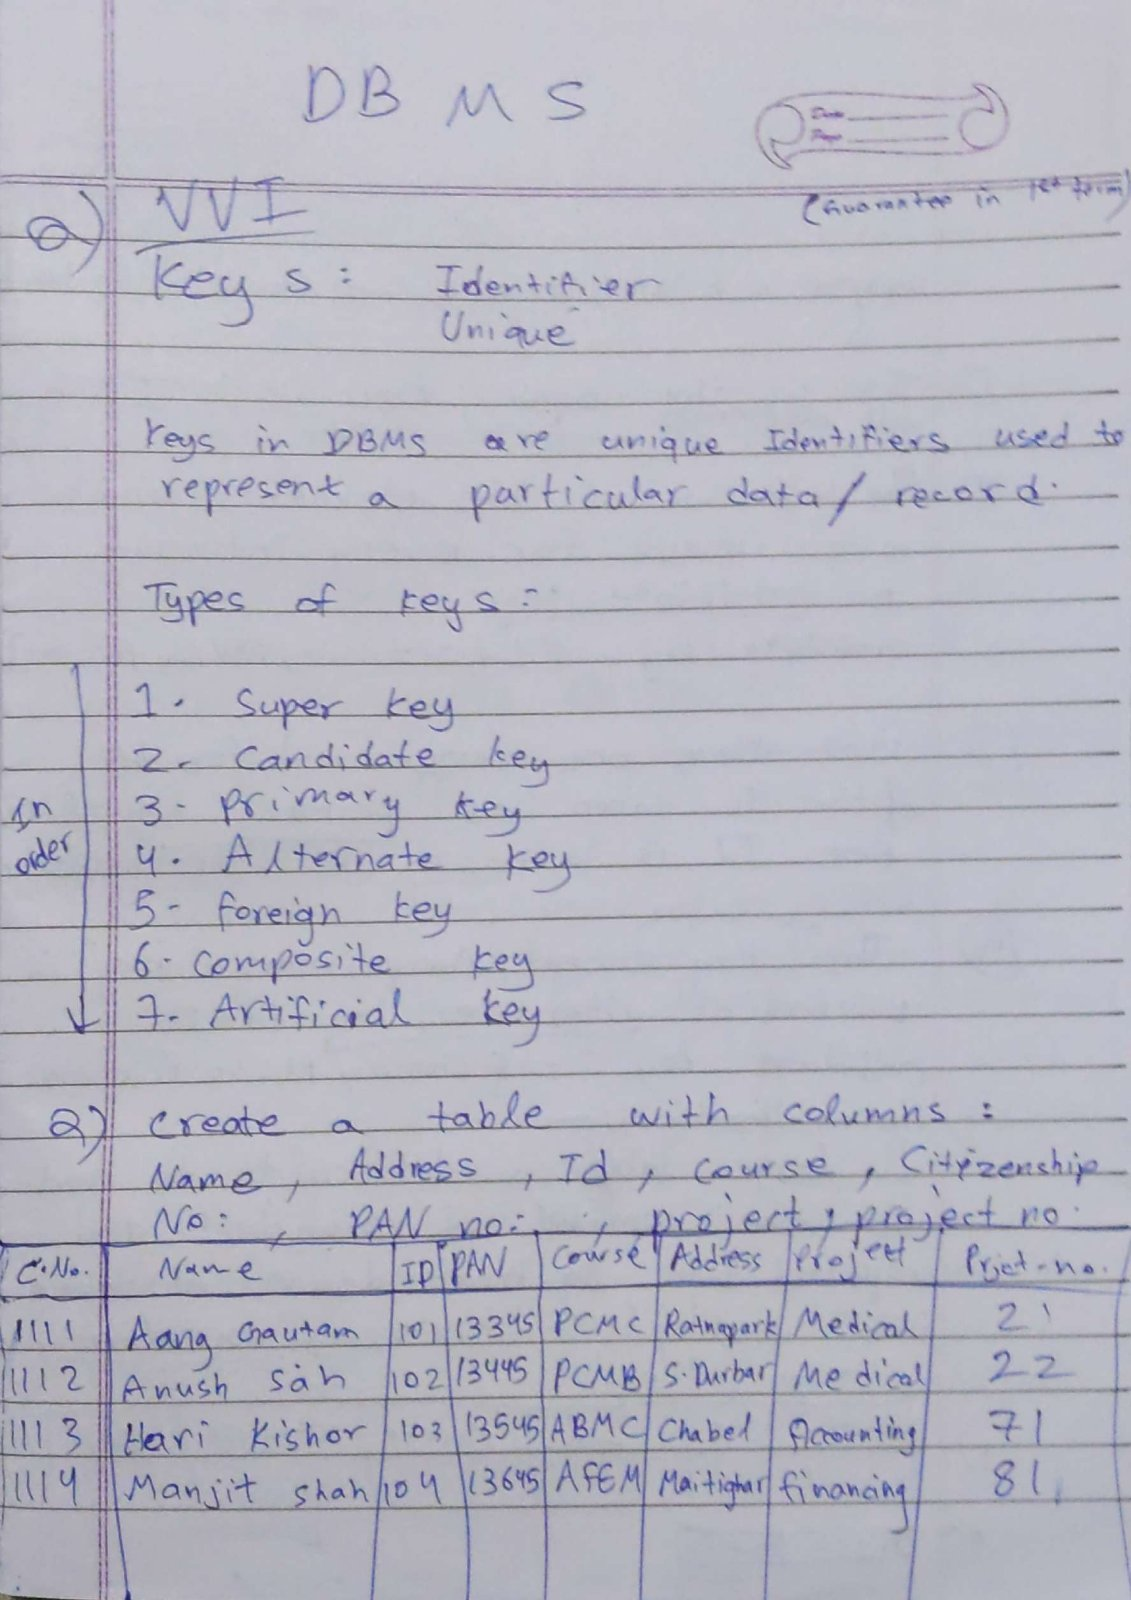 DBMS
Date
Page
(Guarantee in 1st term)
Q) VVI
Keys: Identifier
Unique
Keys in DBMS are unique Identifiers used to
represent a particular data/ record.
Types of keys:-
In order
1. Super key
2. Candidate key
3. primary key
4. Alternate key
5. foreign key
6. composite key
7. Artificial key
Q) create a table with columns:
Name, Address, Id, course, Citizenship
No:, PAN no:, project, project no.
C.No. Name ID PAN Course Address Project Prjct-no.
1111 Aang Gautam 101 13345 PCMC Ratnapark Medical 21
1112 Anush sah 102 13445 PCMB S.Durbar Medical 22
1113 Hari Kishor 103 13545 ABMC Chabel Accounting 71
1114 Manjit shah 104 13645 AFEM Maitighar financing 81